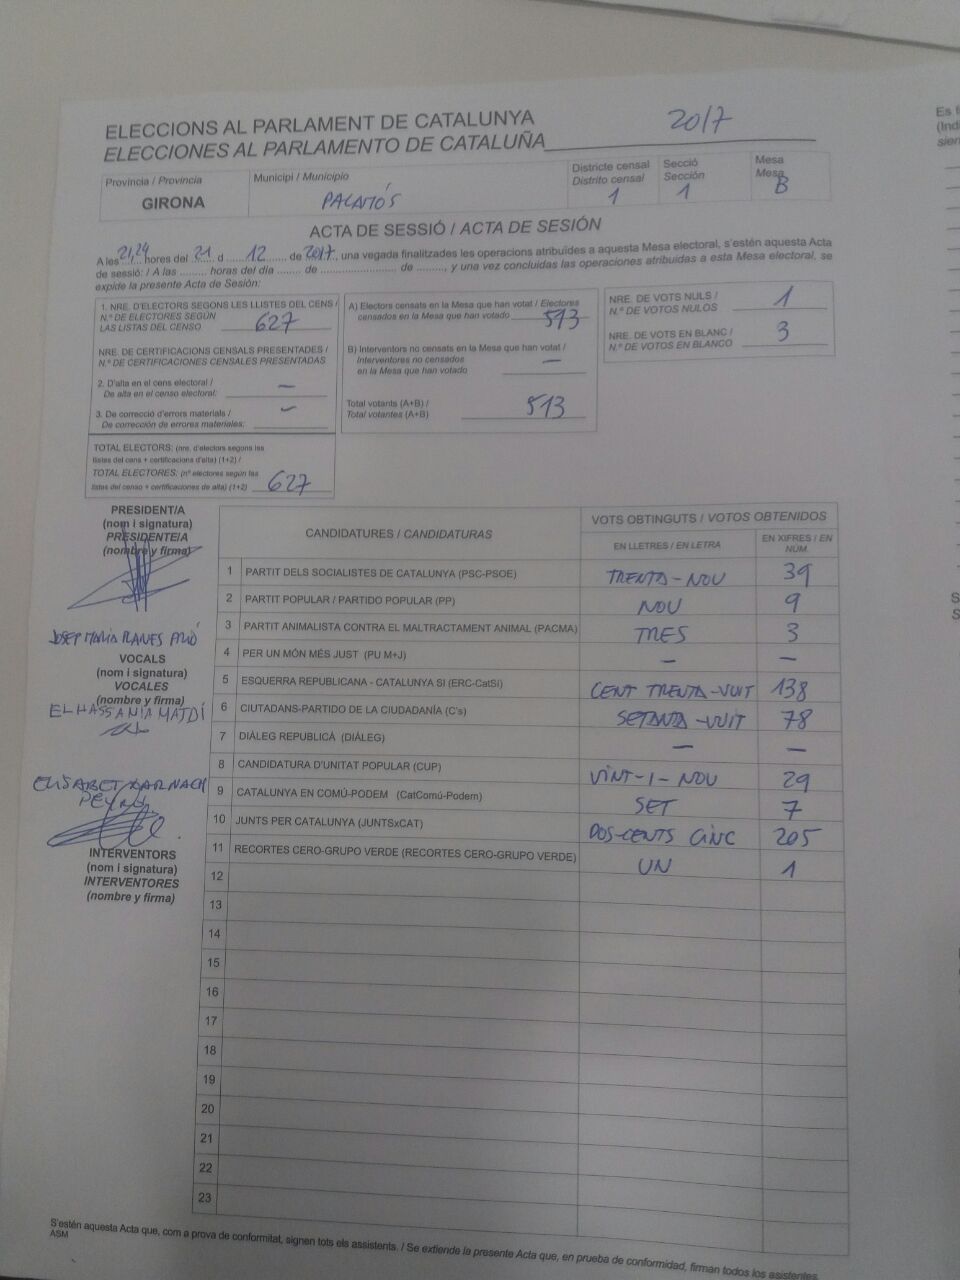 ELECCIONS AL PARLAMENT DE CATALUNYA 2017
ELECCIONES AL PARLAMENTO DE CATALUÑA
Provincia / Provincia
GIRONA
Municipi / Municipio
PALAMÓS
Districte censal
Distrito censal
1
Secció
Sección
1
Mesa
Mesa
B
ACTA DE SESSIÓ / ACTA DE SESIÓN
A les 21,24 hores del 21 d 12 de 2017, una vegada finalitzades les operacions atribuïdes a aquesta Mesa electoral, s'estén aquesta Acta
de sessió: / A las ......... horas del día ....... de ..................... de ........, y una vez concluidas las operaciones atribuidas a esta Mesa electoral, se
expide la presente Acta de Sesión:
1. NRE. D'ELECTORS SEGONS LES LLISTES DEL CENS /
N.º DE ELECTORES SEGÚN
LAS LISTAS DEL CENSO 627
NRE. DE CERTIFICACIONS CENSALS PRESENTADES /
N.º DE CERTIFICACIONES CENSALES PRESENTADAS
2. D'alta en el cens electoral /
De alta en el censo electoral: —
3. De correcció d'errors materials /
De corrección de errores materiales: —
TOTAL ELECTORS: (nre. d'electors segons les
llistes del cens + certificacions d'alta) (1+2) /
TOTAL ELECTORES: (nº electores según las
listas del censo + certificaciones de alta) (1+2) 627
A) Electors censats en la Mesa que han votat / Electores
censados en la Mesa que han votado 513
B) Interventors no censats en la Mesa que han votat /
Interventores no censados
en la Mesa que han votado —
Total votants (A+B) /
Total votantes (A+B) 513
NRE. DE VOTS NULS /
N.º DE VOTOS NULOS 1
NRE. DE VOTS EN BLANC /
N.º DE VOTOS EN BLANCO 3
PRESIDENT/A
(nom i signatura)
PRESIDENTE/A
(nombre y firma)
JOSEP MARIA PLANES
VOCALS
(nom i signatura)
VOCALES
(nombre y firma)
EL HASSANIA MAJDÍ
ELISABET
INTERVENTORS
(nom i signatura)
INTERVENTORES
(nombre y firma)
CANDIDATURES / CANDIDATURAS
VOTS OBTINGUTS / VOTOS OBTENIDOS
EN LLETRES / EN LETRA
EN XIFRES / EN
NÚM.
1 PARTIT DELS SOCIALISTES DE CATALUNYA (PSC-PSOE) TRENTA-NOU 39
2 PARTIT POPULAR / PARTIDO POPULAR (PP) NOU 9
3 PARTIT ANIMALISTA CONTRA EL MALTRACTAMENT ANIMAL (PACMA) TRES 3
4 PER UN MÓN MÉS JUST (PU M+J) — —
5 ESQUERRA REPUBLICANA - CATALUNYA SI (ERC-CatSí) CENT TRENTA-VUIT 138
6 CIUTADANS-PARTIDO DE LA CIUDADANÍA (C's) SETANTA-VUIT 78
7 DIÀLEG REPUBLICÀ (DIÀLEG) — —
8 CANDIDATURA D'UNITAT POPULAR (CUP) VINT-I-NOU 29
9 CATALUNYA EN COMÚ-PODEM (CatComú-Podem) SET 7
10 JUNTS PER CATALUNYA (JUNTSxCAT) DOS-CENTS CINC 205
11 RECORTES CERO-GRUPO VERDE (RECORTES CERO-GRUPO VERDE) UN 1
12
13
14
15
16
17
18
19
20
21
22
23
S'estén aquesta Acta que, com a prova de conformitat, signen tots els assistents. / Se extiende la presente Acta que, en prueba de conformidad, firman todos los asistentes
ASM